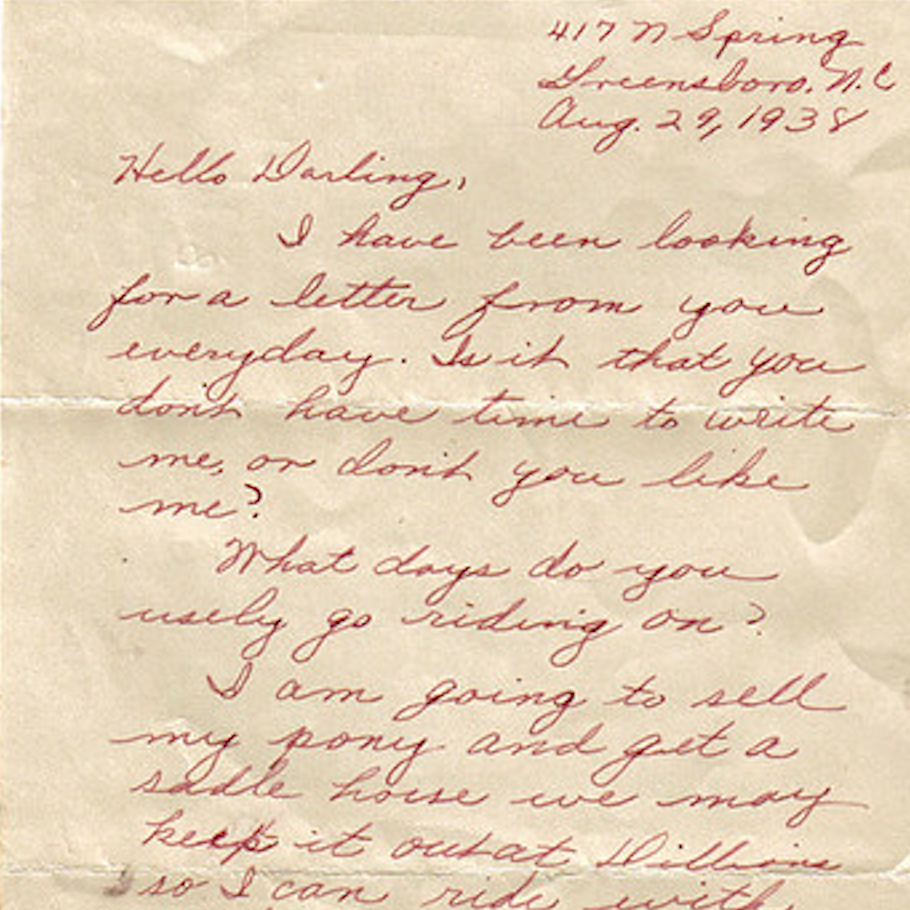 417 N Spring
Greensboro. N.C
Aug. 29, 1938
Hello Darling,
I have been looking
for a letter from you
everyday. Is it that you
don't have time to write
me, or don't you like
me?
What days do you
usely go riding on?
I am going to sell
my pony and get a
sadle horse we may
keep it out at
so I can ride with